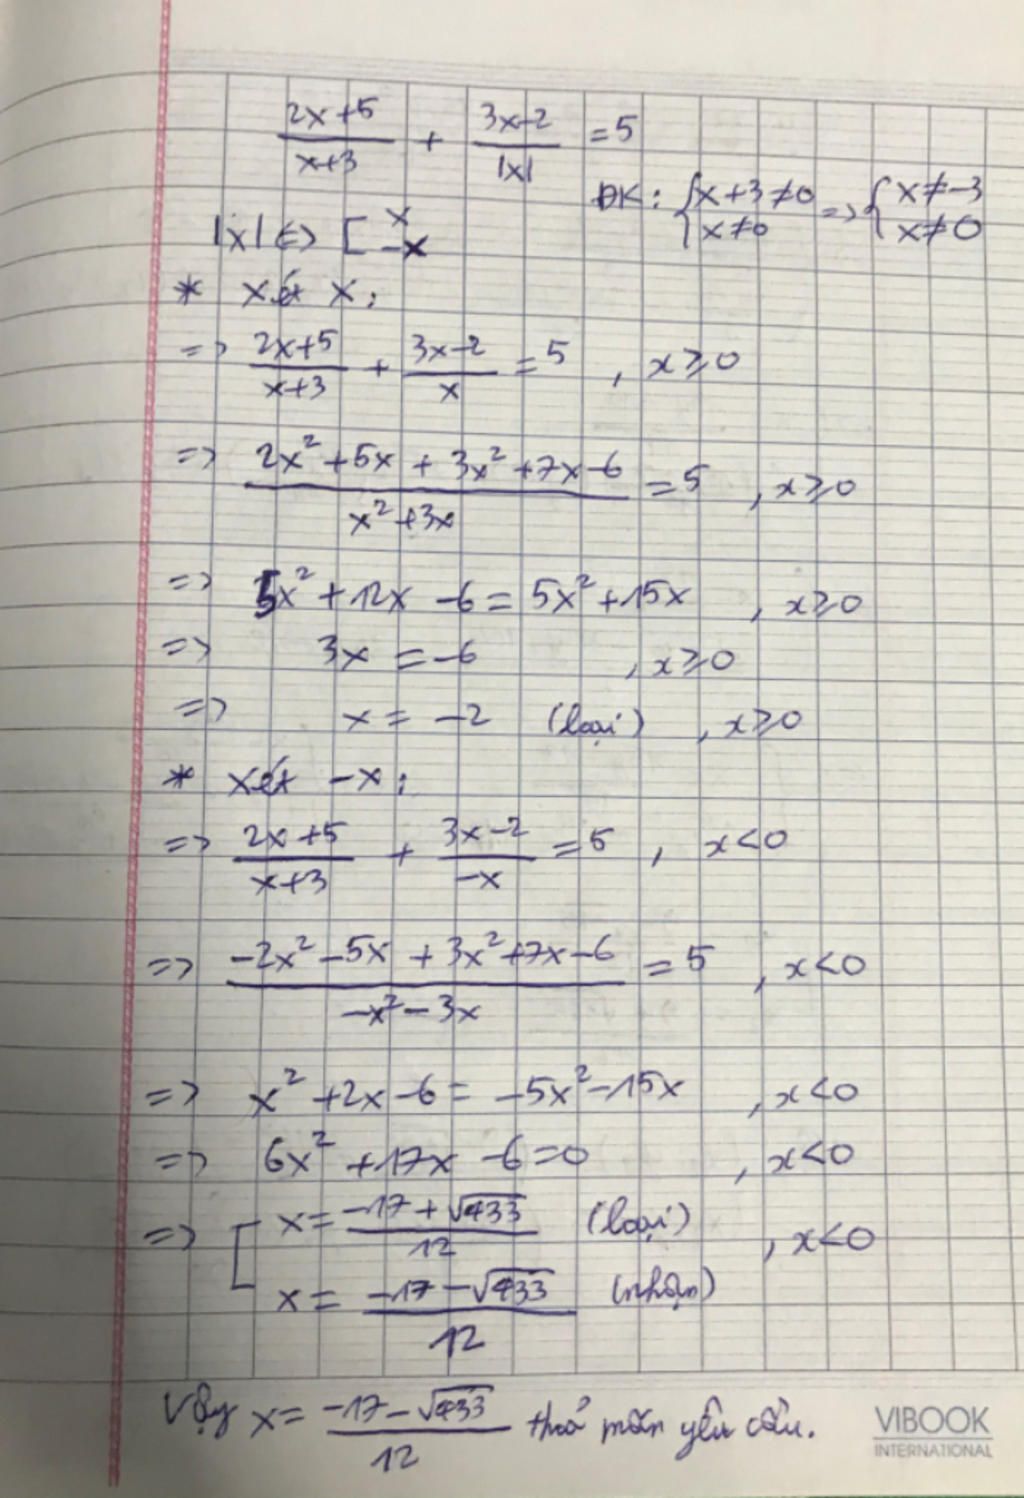 (2x+5)/(x+3) + (3x-2)/|x| = 5
ĐK: { x+3≠0 ; x≠0 => { x≠-3 ; x≠0
|x| <=> [ x ; -x
* xét x:
=> (2x+5)/(x+3) + (3x-2)/x = 5 , x⩾0
=> (2x²+5x+3x²+7x-6)/(x²+3x) = 5 , x⩾0
=> 5x²+12x-6 = 5x²+15x , x⩾0
=> 3x = -6 , x⩾0
=> x = -2 (loại) , x⩾0
* xét -x:
=> (2x+5)/(x+3) + (3x-2)/(-x) = 5 , x<0
=> (-2x²-5x+3x²+7x-6)/(-x²-3x) = 5 , x<0
=> x²+2x-6 = -5x²-15x , x<0
=> 6x²+17x-6=0 , x<0
=> [ x = (-17+√433)/12 (loại) , x<0
x = (-17-√433)/12 (nhận)
Vậy x = (-17-√433)/12 thoả mãn yêu cầu.
VIBOOK
INTERNATIONAL